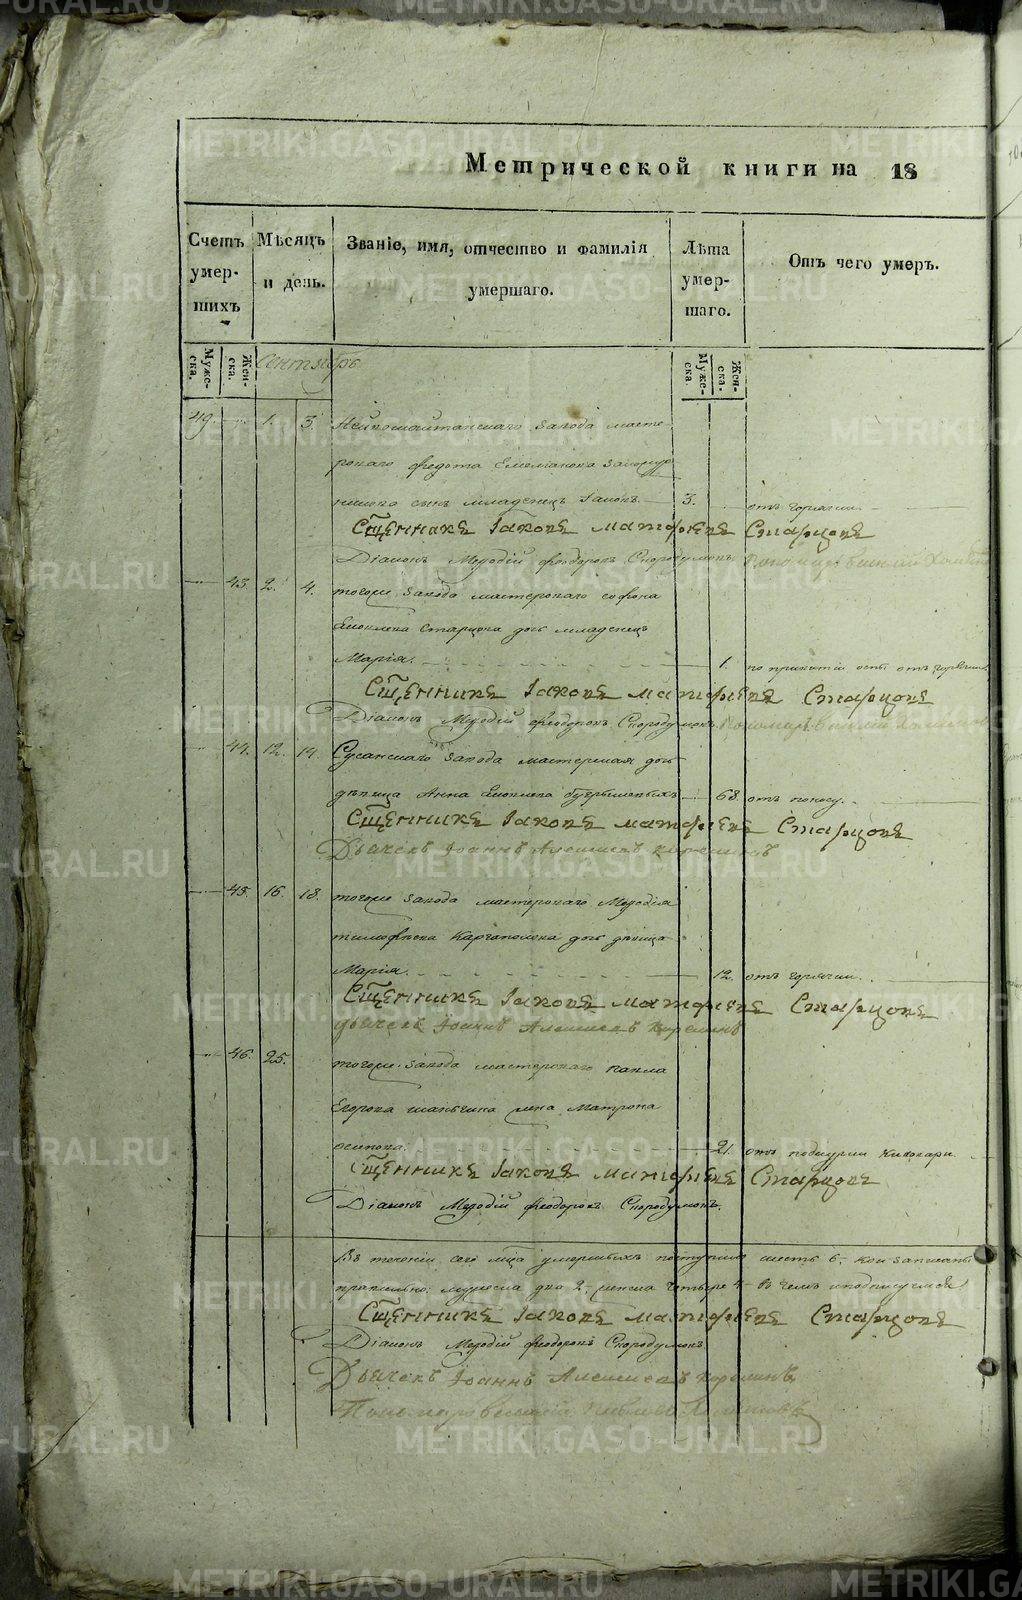 Метрической книги на 18
Счетъ умер- шихъ
Мѣсяцъ и день.
Званіе, имя, отчество и фамилія умершаго.
Лѣта умер- шаго.
Отъ чего умеръ.
Муже- ска.
Жен- ска.
Сентябрь
Муже- ска.
Жен- ска.
49. 1. 3. Нейвошайтанскаго завода масте-
роваго Федота Емельянова
сынъ младенецъ 3. отъ горячки
Сщенникъ Іаковъ Матфѣевъ Старцовъ
Діаконъ Меѳодій Феодоровъ Скородумовъ.
43. 2. 4. тогоже завода мастероваго Софона
Яковлева Старцова дочь младенецъ
Марія. 1. по привитіи оспы отъ горячки
Сщенникъ Іаковъ Матфѣевъ Старцовъ
Діаконъ Меѳодій Феодоровъ Скородумовъ.
44. 12. 14. Сусанскаго завода мастерская дочь
дѣвица Анна Яковлева 68. отъ поносу.
Сщенникъ Іаковъ Матфѣевъ Старцовъ
Дьячекъ Іоаннъ Алексѣевъ
45. 16. 18. тогоже завода мастероваго Меѳодія
Тимофѣева Каргаполова дочь дѣвица
Марія. 12. отъ горячки.
Сщенникъ Іаковъ Матфѣевъ Старцовъ
Дьячекъ Іоаннъ Алексѣевъ
46. 25. тогоже завода мастероваго Павла
Егорова жена Матрона
Осипова 21. отъ
Сщенникъ Іаковъ Матфѣевъ Старцовъ
Діаконъ Меѳодій Феодоровъ Скородумовъ.
Въ теченіи сего мца умершихъ поступило шесть 6. кои записаны
правильно: мужеска два 2. женска четыре 4 въ чемъ и подписуемся
Сщенникъ Іаковъ Матфѣевъ Старцовъ
Діаконъ Меѳодій Феодоровъ Скородумовъ
Дьячекъ Іоаннъ Алексѣевъ
METRIKI.GASO-URAL.RU